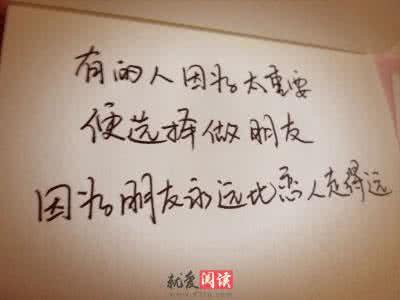 有的人因为太重要
便选择做朋友
因为朋友永远比恋人走得远
就爱阅读